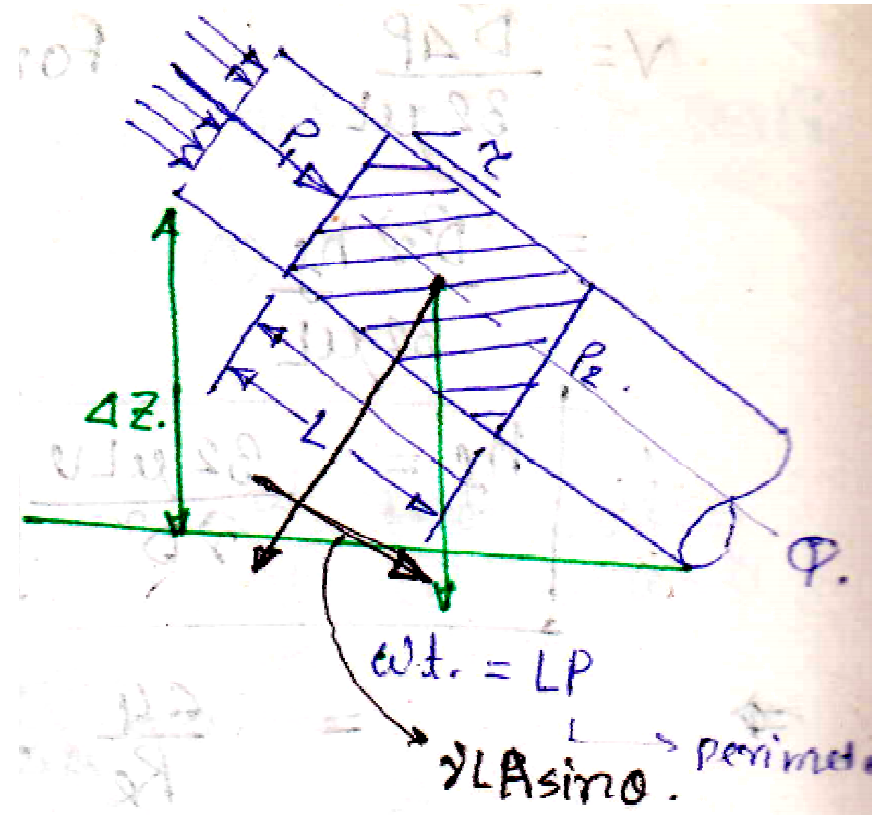 P
τ
P₂.
ΔZ.
L
φ.
wt. = LP
perimet
γLA sinθ.